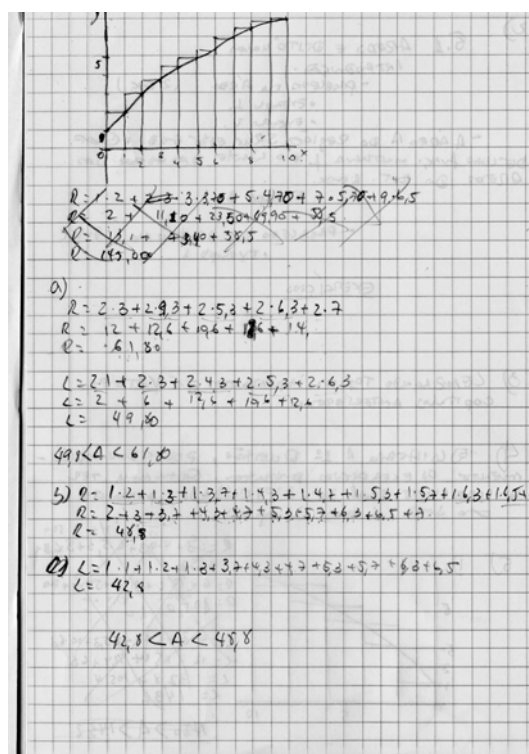 y
5
0 2 4 5 6 8 10 x
R = 1·2 + 2·3 3·3,70 + 5·4,70 + 7·5,70 + 9·6,5
R = 2 + 11,10 + 23,50 + 39,90 + 58,5
R = 13,1 +
R =
a)
R = 2·3 + 2·4,3 + 2·5,3 + 2·6,3 + 2·7
R = 12 + 12,6 + 10,6 + 12,6 + 14,
R = 61,80
L = 2·1 + 2·3 + 2·4,3 + 2·5,3 + 2·6,3
L = 2 + 6 + 12,6 + 10,6 + 12,6
L = 49,80
49,8 < A < 61,80
b) R = 1·2 + 1·3 + 1·3,7 + 1·4,3 + 1·4,7 + 1·5,3 + 1·5,7 + 1·6,3 + 1·6,5 +
R = 2 + 3 + 3,7 + 4,3 + 4,7 + 5,3 + 5,7 + 6,3 + 6,5 + 7
R = 48,8
L = 1·1 + 1·2 + 1·3 + 3,7 + 4,3 + 4,7 + 5,3 + 5,7 + 6,3 + 6,5
L = 42,8
42,8 < A < 48,8